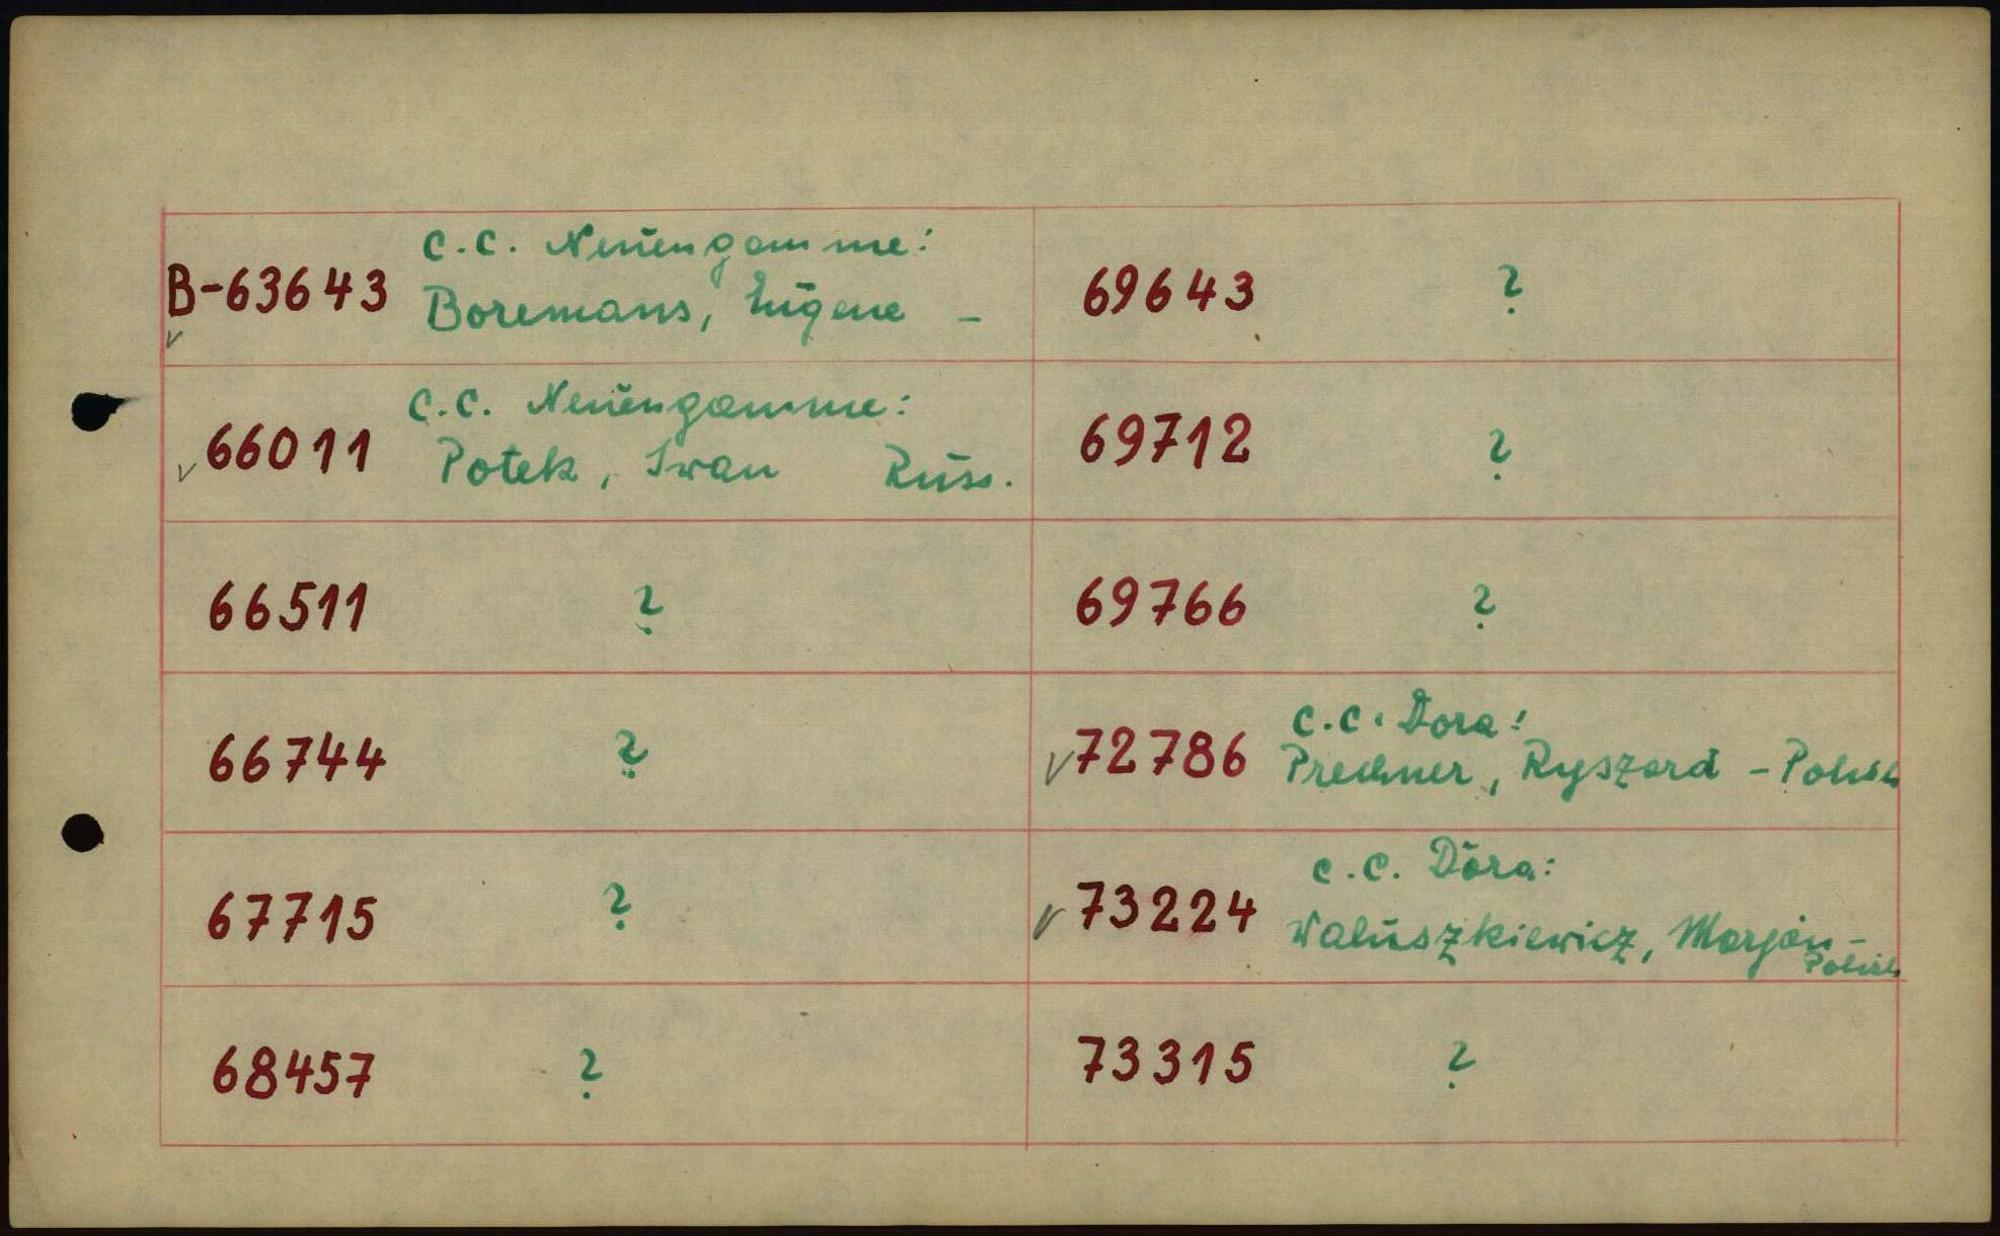 B-63643 C.C. Neuengamme:
Boremans, Eugene -
66011 C.C. Neuengamme:
Potek, Iwan Russ.
66511 ?
66744 ?
67715 ?
68457 ?
69643 ?
69712 ?
69766 ?
72786 C.C. Dora:
Prechner, Ryszard - Polish
73224 C.C. Dora:
Waluszkiewicz, Marjan -
Polish
73315 ?